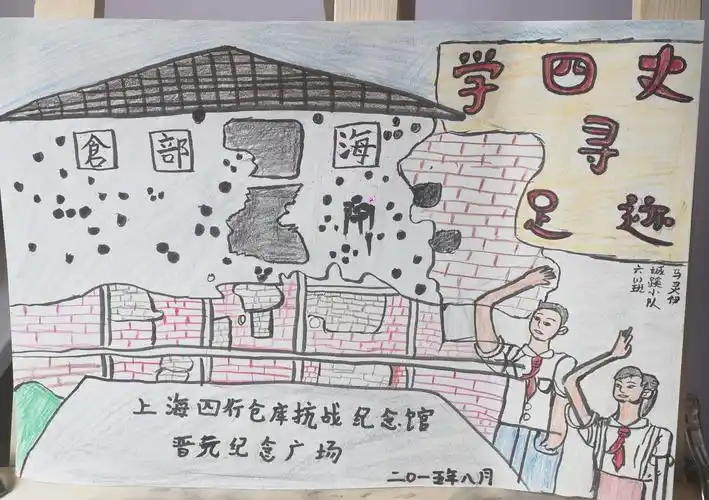 学四史
寻
足迹
倉部海
小队
上海四行仓库抗战纪念馆
晋元纪念广场
二〇一五年八月